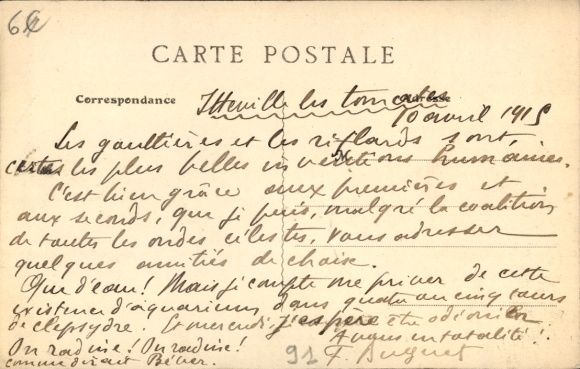 6
CARTE POSTALE
Correspondance
Adresse
Itteville les tomates
10 avril 1915
Les gaultières et les rifflards sont,
certes les plus belles inventions humaines.
C'est bien grâce aux premières et
aux seconds, que je puis, malgré la coalition
de toutes les ondes célestes, vous adresser
quelques amitiés de chaise.
Que d'eau! Mais je compte me priver de cette
existence d'aquarium, dans quatre ou cinq cours
de clepsydre. Et mercredi, j'espère être
A vous en totalité!
On radine! On radine!
comme dirait Béber.
91
F. Buguet